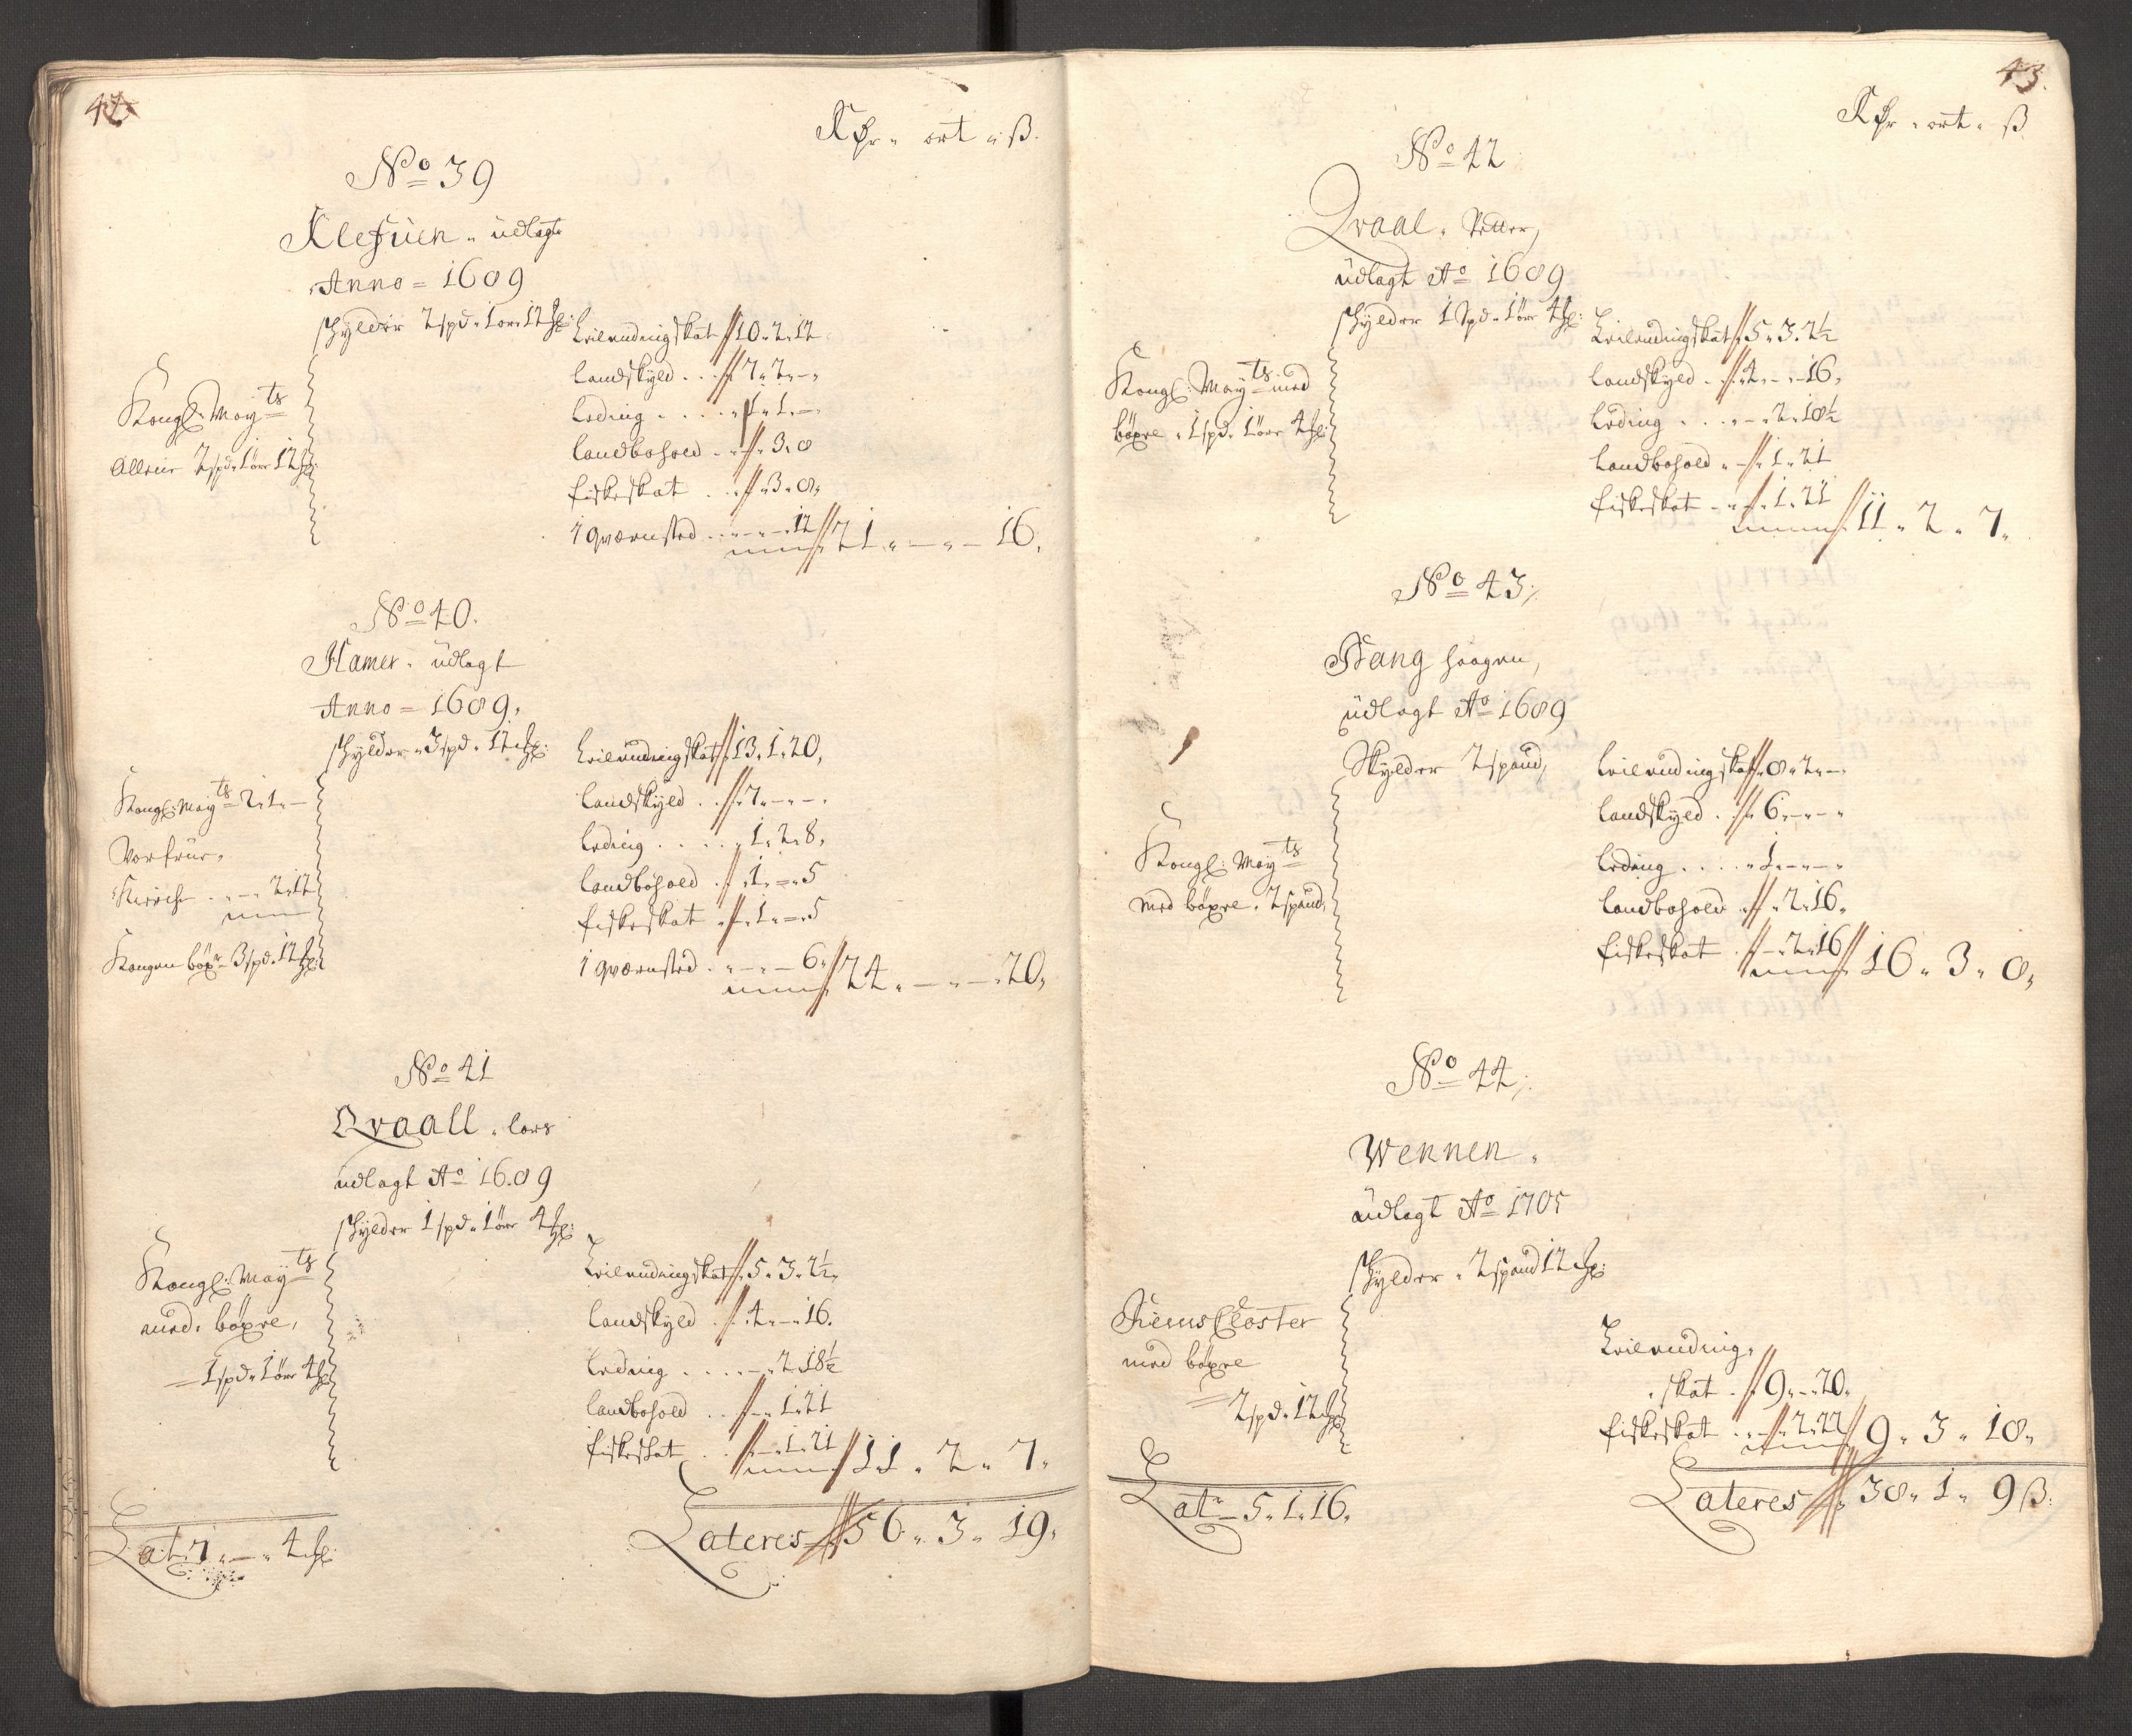 42
Rdr " ort " ß.
No 39
Klefuen " udlagt
Anno = 1689
Schylder 2 spd " 1 ør 12 sl:
Kongl: Mayts
Allene 2 spd " 1 ør 12 sl:
Leilendingskat 10 " 2 " 12
Landskyld . . 7 " 2 " –
Leding . . . . 1 " 1 " –
Landbohold . . " 3 " 8
fiskeskat . . " 3 " 8 "
1 qværnsted . . " – " – 12 21 " – " – 16 "
No 40.
Hamer " udlagt
Anno = 1689 "
Schylder " 3 spd " 12 sl:
Kongl: Mayts 2 " 1 " –
Vorfrue "
Kirche . . – " 2 " 12
Kongen böxr 3 spd " 12 sl:
Leilendingskat 13 " 1 " 20 "
Landskyld . . 7 " – " –
Leding . . . . 1 " 2 " 8 "
Landbohold . . 1 " – " 5
fiskeskat . . 1 " – " 5
1 qværnsted . " – " – 6 " 24 " – " – " 20 "
No 41
Qvaall " Lars
udlagt Ao 1689
Schylder 1 spd " 1 ör 4 sl:
Kongl: Mayts
med böxre "
= 1 spd " 1 ör 4 sl
Leilendingskat 5 " 3 " 2½ "
Landskyld . . 4 " – " 16.
Leding . . . . – " 2 " 18½
Landbohold . . – " 1 " 21
fiskeskat . . – " 1 " 21 11 " 2 " 7 "
Lat: 7 " – " 4 sl:
Lateres 56 " 3 " 19 "
43.
Rdr " ort " ß
No 42
Qvaal " Petter,
udlagt Ao 1689
Schylder 1 spd " 1 ör 4 sl:
Kongl: Mayts med
böxre " 1 spd " 1 ör 4 sl:
Leilendingskat 5 " 3 " 2½
Landskyld . 4 " – " 16 "
Leding . . . – " 2 " 18½
Landbohold " – " 1 " 21
fiskeskat – " 1 " 21 11 " 2 " 7 "
No 43
Stang haagen,
udlagt Ao 1689
Skylder 2 spand,
Kongl: Mayts
med böxre " 2 spand,
Leilendingskat 8 " 2 " –
Landskyld . 6 " – " –
Leding . . . . 1 " – " –
Landbohold " 2 " 16 "
fiskeskat . – " 2 " 16 16 " 3 " 8 "
No 44
Wennen "
udlagt Ao 1705
Schylder " 2 spand 12 sl:
Reins Closter
med böxre
= 2 spd " 12 sl
Leilending "
skat . 9 " – " 20 "
fiskeskat . . – " 2 " 22 9 " 3 " 18 "
Latr 5 " 1 " 16 "
Lateres 38 " 1 " 9 ß: